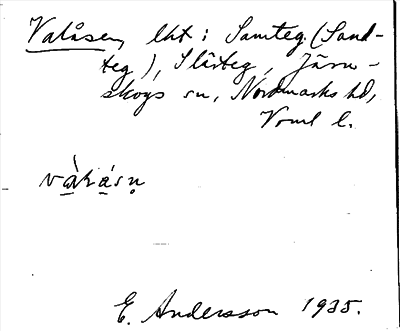 Valåsen, lht i Samteg (Sand-
teg), Slåteg, Järn-
skogs sn, Nordmarks hd,
Vrml l.
vàlåsṇ
E. Andersson 1935.